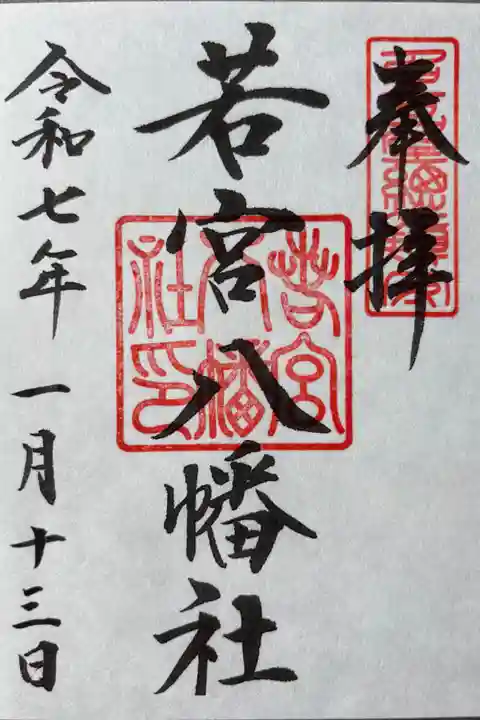 奉拝
若宮八幡社
若宮
八幡
社印
令和七年一月十三日